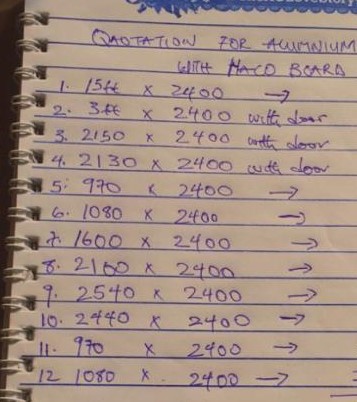 QAOTATION FOR ALUMNIUM
WITH MACO BOARD
1. 15ft x 2400 →
2. 3ft x 2400 with door
3. 2150 x 2400 with door
4. 2130 x 2400 with door
5. 970 x 2400 →
6. 1080 x 2400 →
7. 1600 x 2400 →
8. 2160 x 2400 →
9. 2540 x 2400 →
10. 2440 x 2400 →
11. 970 x 2400 →
12 1080 x. 2400 →